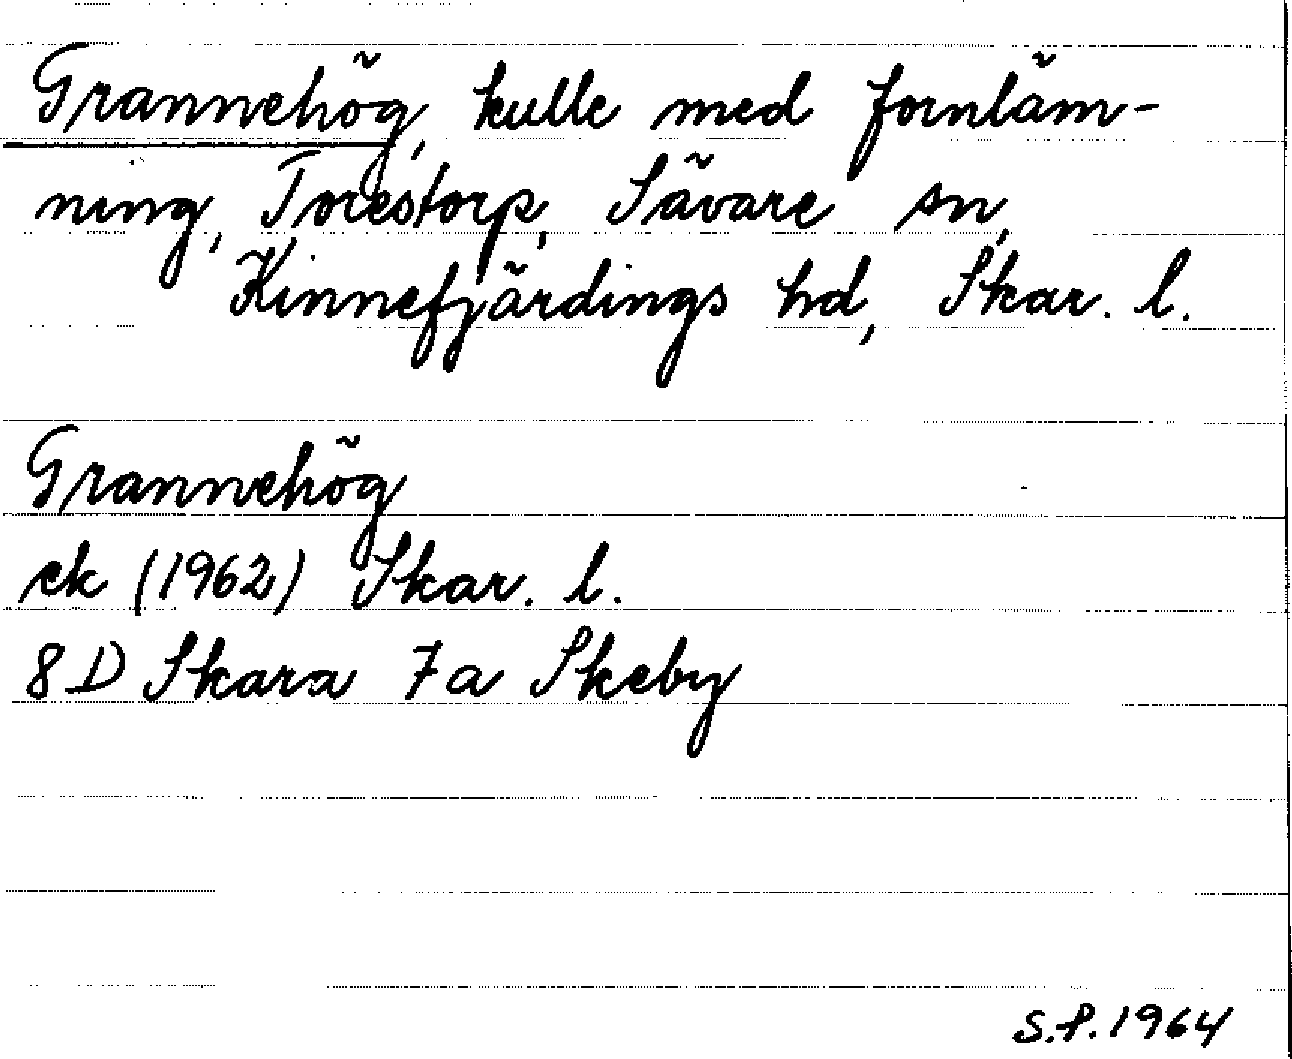 Grannehög, kulle med fornläm-
ning, Torestorp, Sävare sn,
Kinnefjärdings hd, Skar. l.
Grannehög
ek (1962) Skar. l.
8D Skara 7a Skeby
S.P. 1964